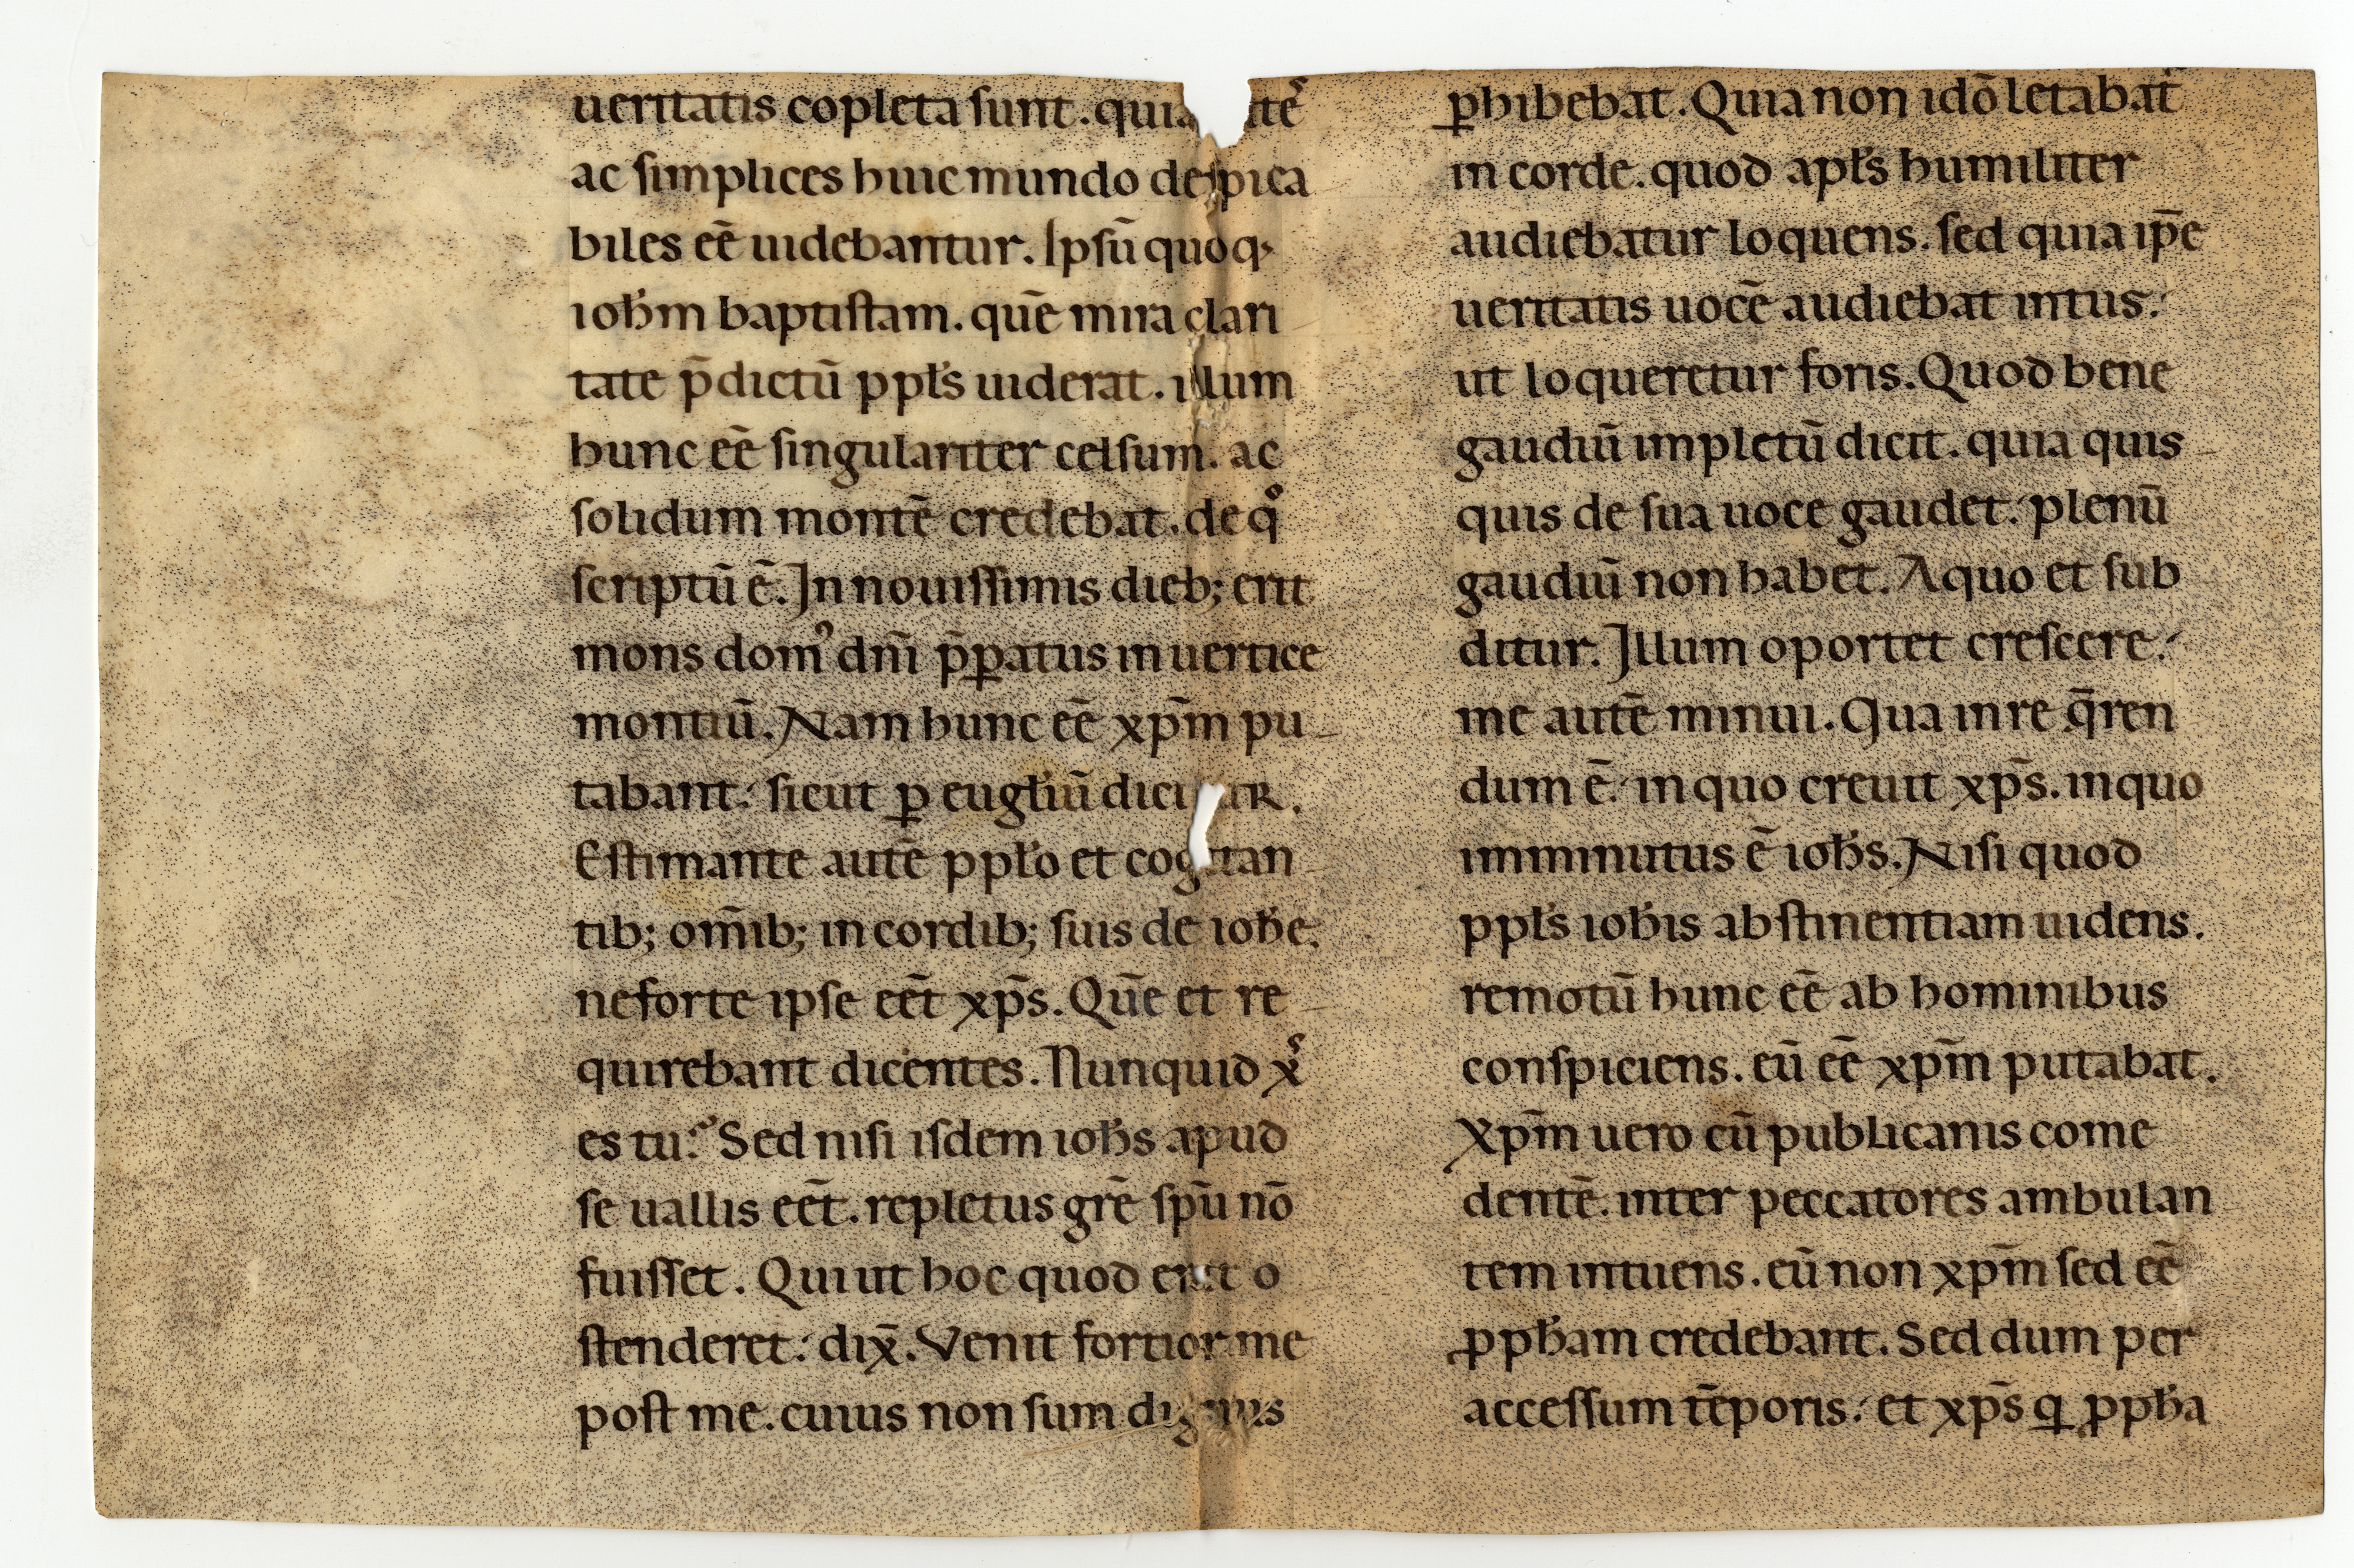 ueritatis cōpleta sunt. quia
ac simplices huic mundo despica
biles eē uidebantur. Ipsū quoq;
ioh̄m baptistam. quē mira clari
tate p̄dictū ppl̄s uiderat. illum
hunc eē singulariter celsum. ac
solidum montē credebat. de qͦ
scriptū ē. In nouissimis dieb; erit
mons domꝰ dn̄i p̄ꝑatus in uertice
montiū. Nam hunc eē xp̄m pu
tabant. sicut ꝑ eugl̄iū dicitur.
Estimante autē ppl̄o et cogitan
tib; om̄ib; in cordib; suis de ioh̄e.
ne forte ipse eēt xp̄s. Quē et re
quirebant dicentes. Nunquid xˢ
es tu? Sed nisi isdem ioh̄s apud
se uallis eēt. repletus grē spū nō
fuisset. Qui ut hoc quod erat o
stenderet. dix̄. Venit fortior me
post me. cuius non sum dignus
ꝓhibebat. Quia non idō letabat
in corde. quod apl̄s humiliter
audiebatur loquens. sed quia ip̄e
ueritatis uocē audiebat intus.
ut loqueretur foris. Quod bene
gaudiū impletū dicit. quia quis
quis de sua uoce gaudet. plenū
gaudiū non habet. A quo et sub
ditur. Illum oportet crescere.
me autē minui. Qua in re q̄ren
dum ē. in quo creuit xp̄s. in quo
imminutus ē ioh̄s. Nisi quod
ppl̄s ioh̄is abstinentiam uidens.
remotū hunc eē ab hominibus
conspiciens. eū eē xp̄m putabat.
Xp̄m uero cū publicanis come
dentē. inter peccatores ambulan
tem intuens. eū non xp̄m sed eē
ꝓph̄am credebant. Sed dum per
accessum tēporis. et xp̄s ꝗ ꝓph̄a